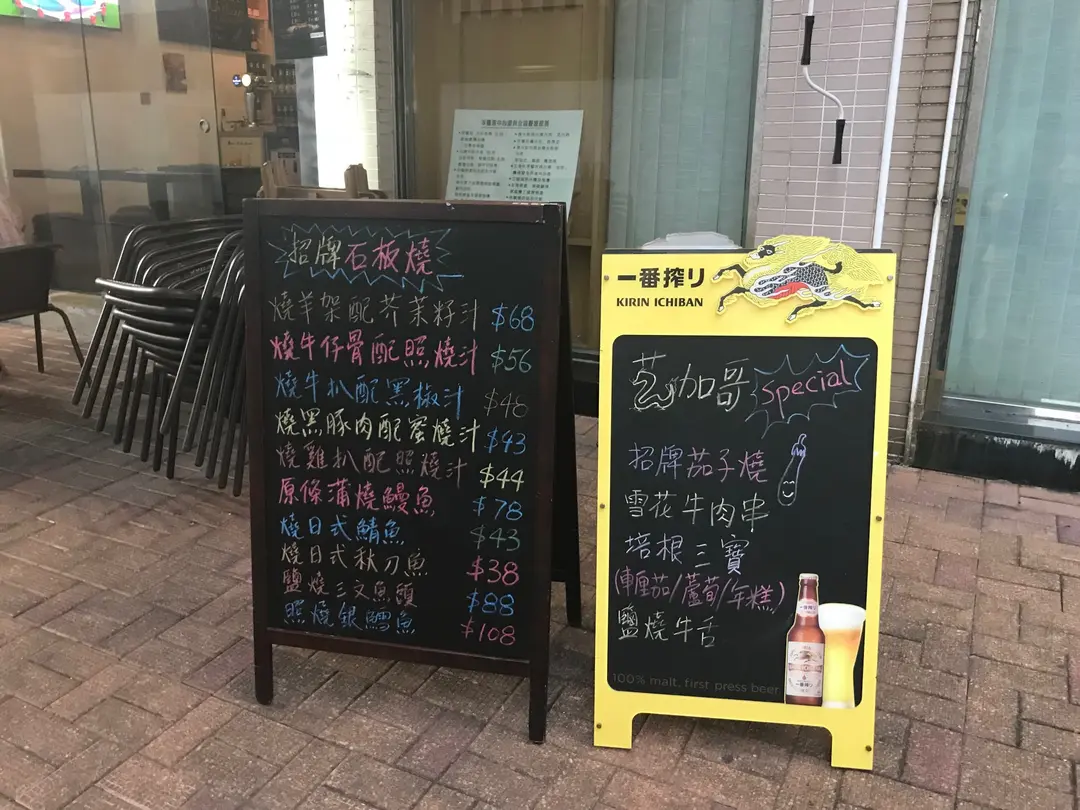 招牌石板燒
燒羊架配芥茉籽汁 $68
燒牛仔骨配照燒汁 $56
燒牛扒配黑椒汁 $48
燒黑豚肉配蜜燒汁 $43
燒雞扒配照燒汁 $44
原條蒲燒鰻魚 $78
燒日式鯖魚 $43
燒日式秋刀魚 $38
鹽燒三文魚頭 $88
照燒銀鱈魚 $108
一番搾り
KIRIN ICHIBAN
加哥 special
招牌茄子燒
雪花牛肉串
培根三寶
(車厘茄/蘆荀/年糕)
鹽燒牛舌
100% malt, first press beer